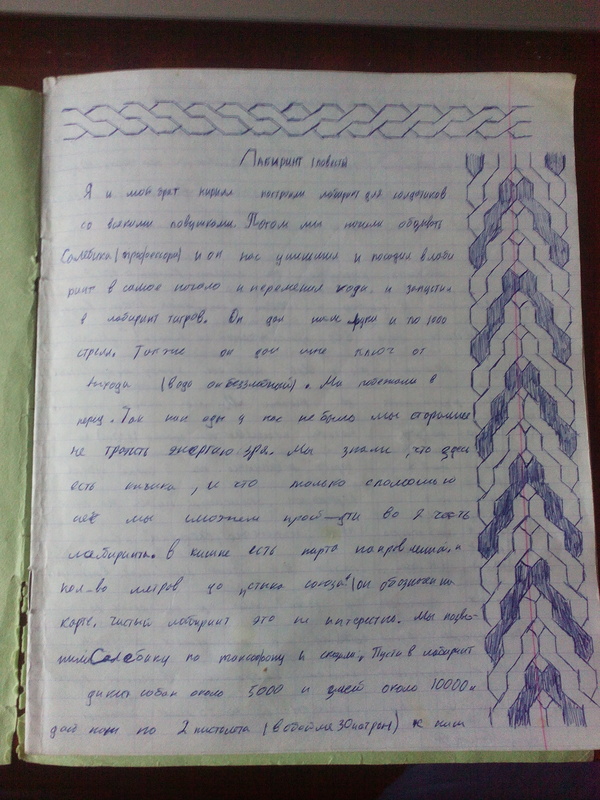 Лабиринт (повесть)
Я и мой брат Кирилл построили лабиринт для солдатиков
со всякими ловушками. Потом мы пошли обзывать
Салебика (профессора) и он нас уменшил и посадил в лаби
ринт в самое начало и переменил хода. и запустил
в лабиринт тигров. Он дал нам луки и по 1000
стрел. Также он дал мне ключ от
выхода (вода он беззлобный). Мы побежали в
перёд. Так как еды у нас не было мы старались
не тратить энергию зря. Мы знали, что здесь
есть книжка, и что только спомощью
неё мы сможем прой-ти во 2 часть
лабиринта. в книге есть карта направления, и
кол-во метров до "стыка союза" (он обозначен на
карте. чистый лабиринт это не интересно. Мы позво-
нили Салебику по таксофону и сказали, Пусти в лабиринт
диких собак около 5000 и змей около 10000 и
дай нам по 2 пистолета (в обойме 30 патрон) к ним